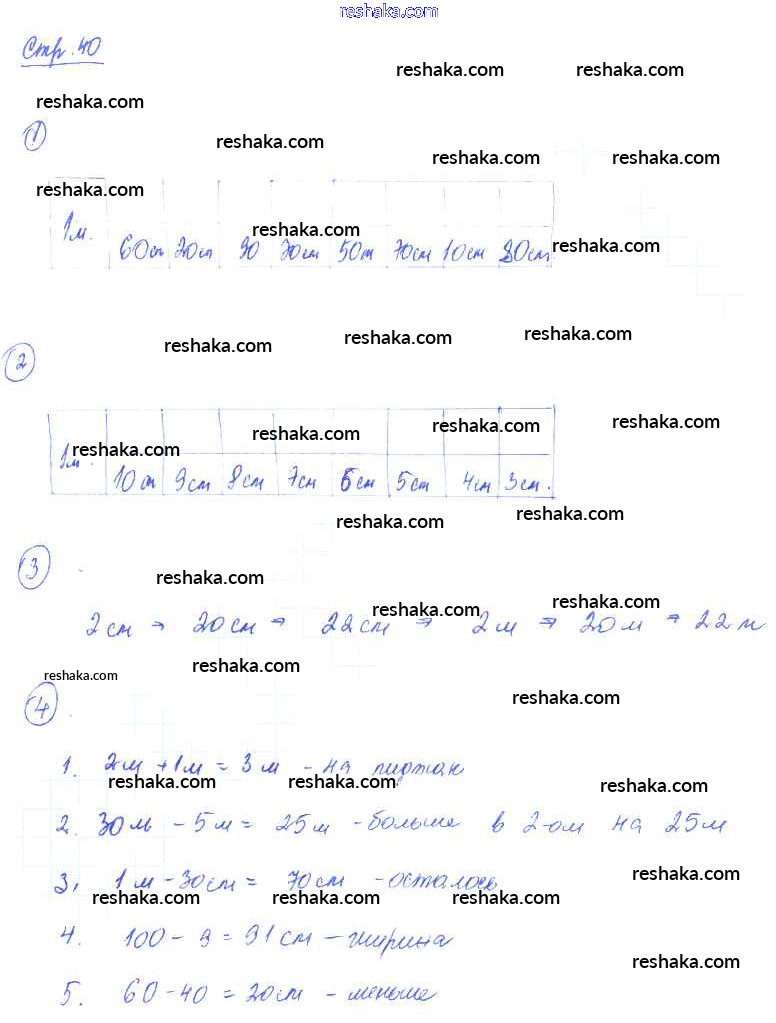 reshaka.com
Стр. 40
reshaka.com reshaka.com
reshaka.com
1
reshaka.com
reshaka.com reshaka.com
reshaka.com
reshaka.com
1м. 60см 20см 90 70см 50см 70см 10см 80см
reshaka.com
reshaka.com reshaka.com reshaka.com
2
reshaka.com reshaka.com reshaka.com
reshaka.com
1м. 10см 9см 8см 7см 6см 5см 4см 3см.
reshaka.com reshaka.com
3
reshaka.com
reshaka.com reshaka.com
2см → 20см → 22см → 2м → 20м → 22м
reshaka.com reshaka.com
reshaka.com
4
1. 2м + 1м = 3м - на
reshaka.com reshaka.com reshaka.com
2. 30м - 5м = 25м - больше в 2-ом на 25м
reshaka.com
3. 1м - 30см = 70см - осталось
reshaka.com reshaka.com reshaka.com
4. 100 - 9 = 91см - ширина
reshaka.com
5. 60 - 40 = 20см - меньше